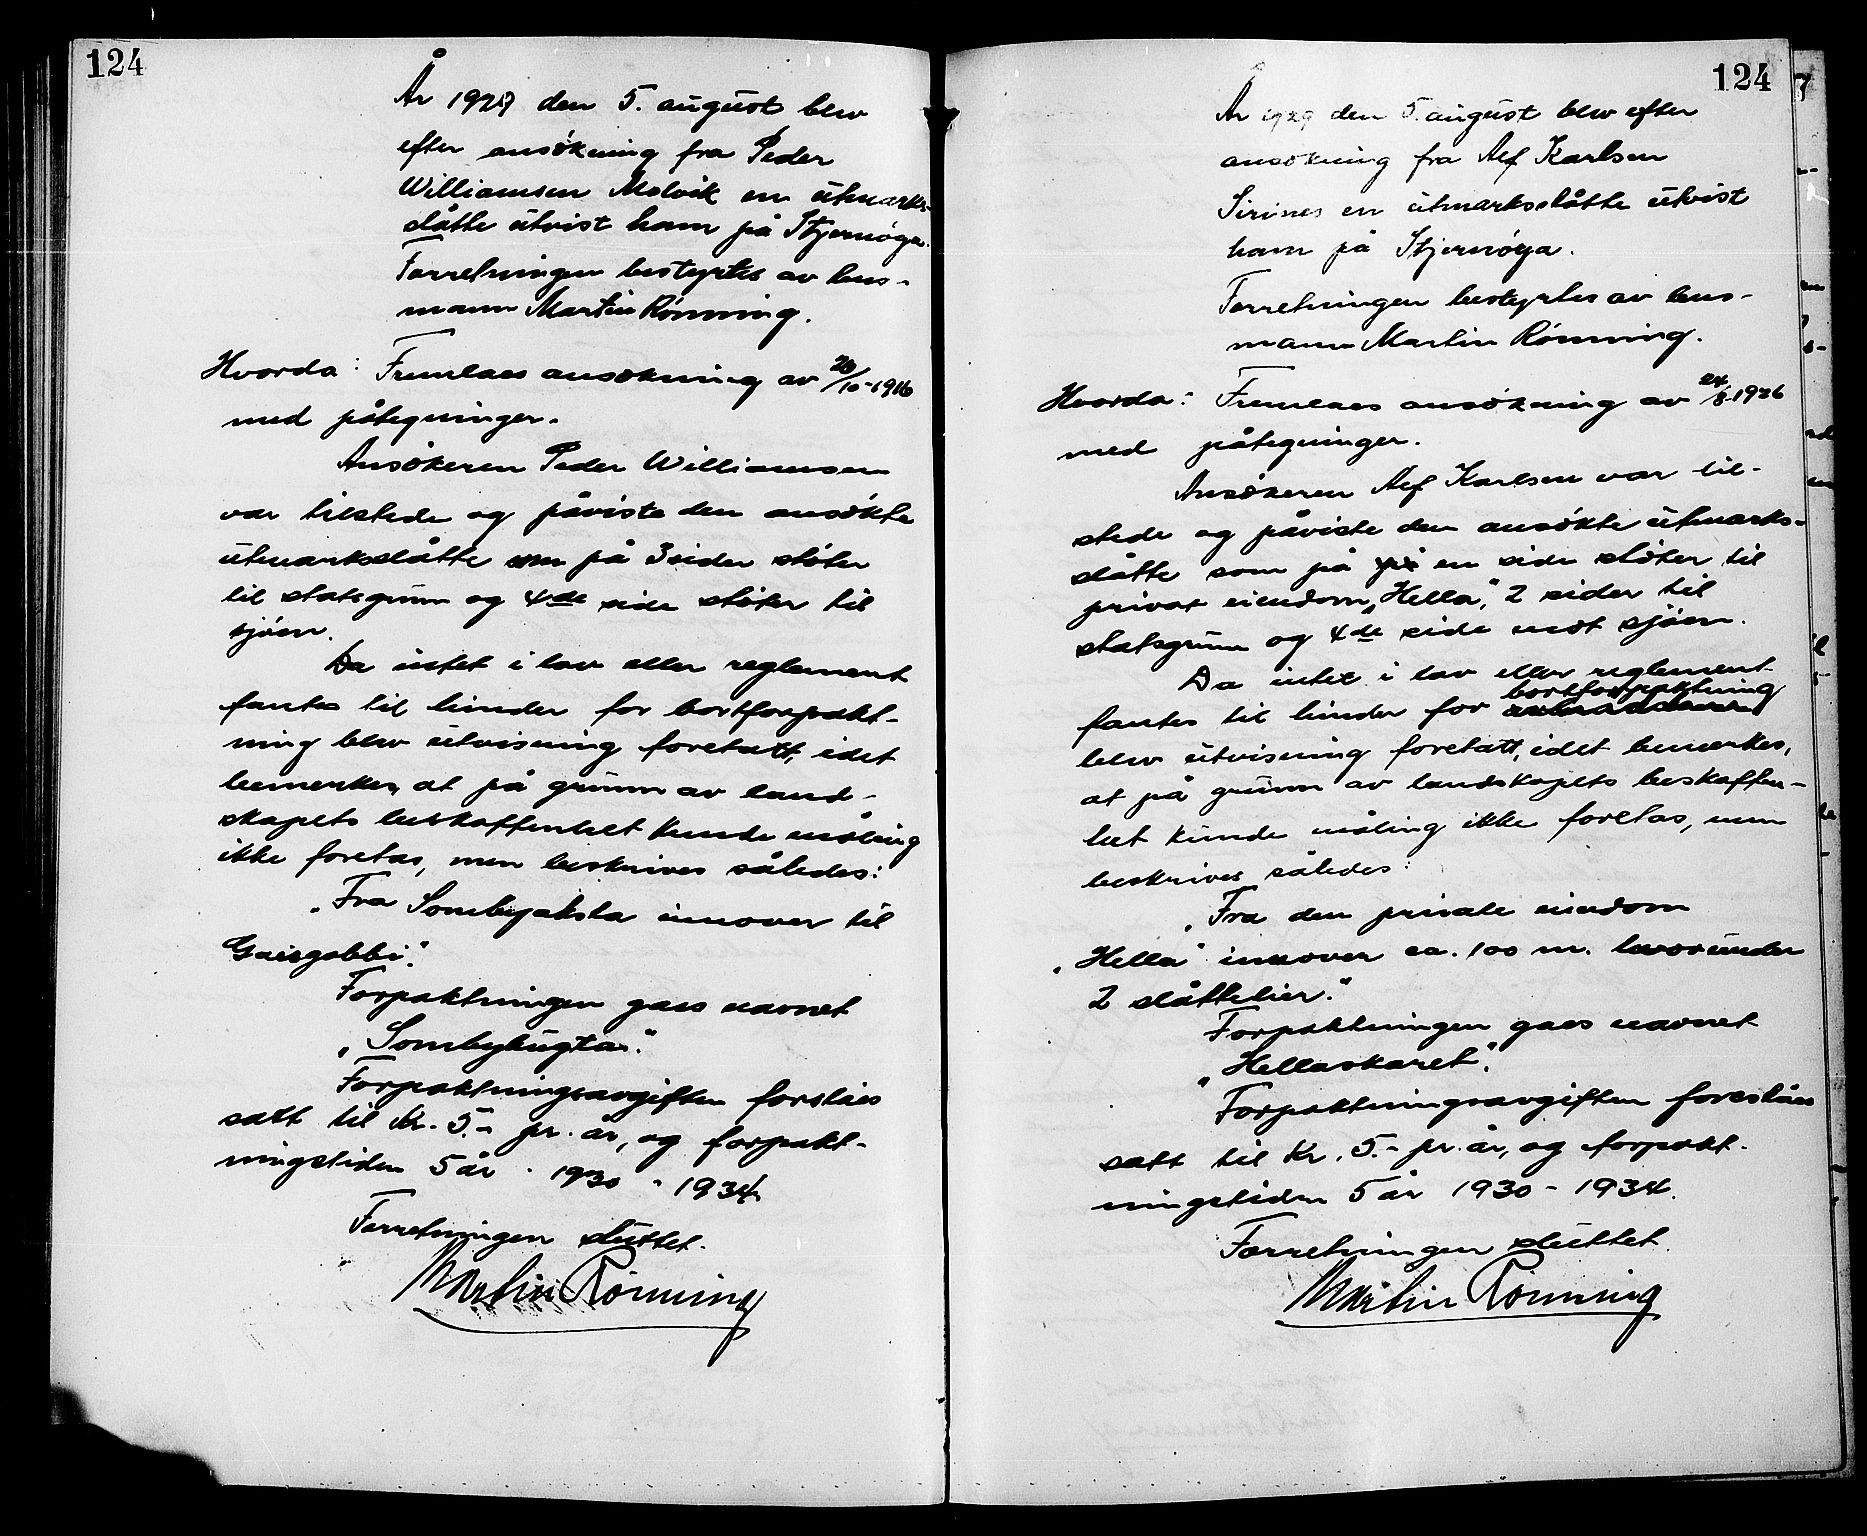 124
År 1929 den 5. august blev
efter ansøkning fra Peder
Williamsen Molvik en utmarks-
slåtte utvist ham på Stjernøya.
Forretningen bestyrtes av lens-
mann Martin Rønning.
Hvorda: Fremlaes ansøkning av 20/10-1926
med påtegninger.
Ansøkeren Peder Williamsen
var tilstede og påviste den ansøkte
utmarkslåtte som på 3 sider støter
til statsgrunn og 4de side støter til
sjøen.
Da intet i lov eller reglement
fantes til hinder for bortforpakt-
ning blev utvisning foretatt, idet
bemerkes, at på grunn av land-
skapets beskaffenhet kunde måling
ikke foretas, men beskrives således:
„Fra Sombyaksla innover til
Gaisgobbi“.
Forpaktningen gaes navnet
„Sombybugta“.
Forpaktningsavgiften forslåes
satt til kr. 5.- pr. år, og forpakt-
ningstiden 5 år - 1930 - 1934
Forretningen sluttet.
Martin Rønning
124
År 1929 den 5. august blev efter
ansøkning fra Alf Karlsen
Sirines en utmarksslåtte utvist
ham på Stjernøya.
Forretningen bestyrtes av lens-
mann Martin Rønning.
Hvorda: Fremlaes ansøkning av 24/8-1926
med påtegninger.
Ansøkeren Alf Karlsen var til-
stede og påviste den ansøkte utmarks-
slåtte som på en side støter til
privat eiendom „Hella“, 2 sider til
statsgrunn og 4de side mot sjøen.
Da intet i lov eller reglement
fantes til hinder for bortforpaktning
blev utvisning foretatt, idet bemerkes,
at på grunn av landskapets beskaffen-
het kunde måling ikke foretas, men
beskrives således:
„Fra den private eiendom
„Hella“ innover ca. 100 m. hvorunder
2 slåttelier.“
Forpaktningen gaes navnet
„Hellaskaret“.
Forpaktningsavgiften foreslåes
satt til kr. 5.- pr. år, og forpakt-
ningstiden 5 år 1930 - 1934.
Forretningen sluttet.
Martin Rønning